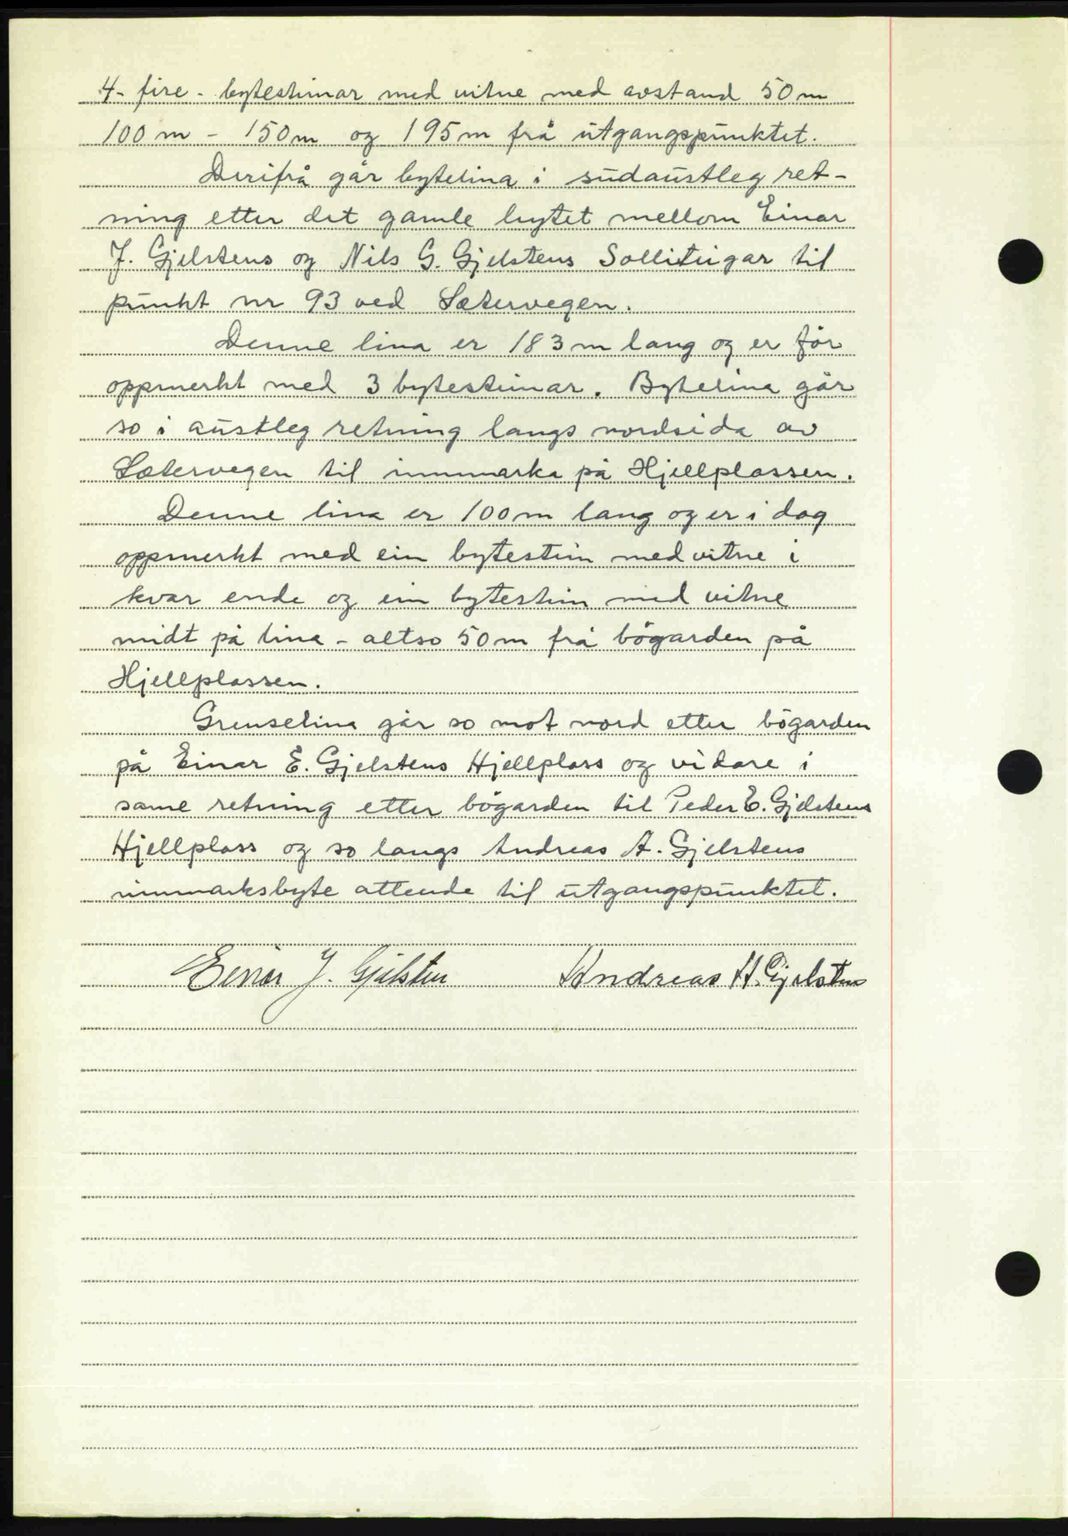 4- fire - bytesteinar med vitne med avstand 50 m
100 m - 150 m og 195 m frå utgangspunktet.
Derifrå går bytelina i südaustleg ret-
ning etter det gamle bytet mellom Einar
J. Gjelstens og Nils G. Gjelstens Solliteigar til
punkt nr 93 ved Sætervegen.
Denne lina er 183 m lang og er før
oppmerkt med 3 bytesteinar. Bytelina går
so i austleg retning langs nordsida av
Sætervegen til innmarka på Hjellplassen.
Denne lina er 100 m lang og er i dag
oppmerkt med ein bytestein med vitne i
kvar ende og ein bytestein med vitne
midt på lina - altso 50 m frå bøgarden på
Hjellplassen.
Grenselina går so mot nord etter bøgarden
på Einar E. Gjelstens Hjellplass og vidare i
same retning etter bøgarden til Peder E. Gjelstens
Hjellplass og so langs Andreas A. Gjelstens
innmarksbyte attende til utgangspunktet.
Einar J. Gjelsten Andreas A. Gjelsten